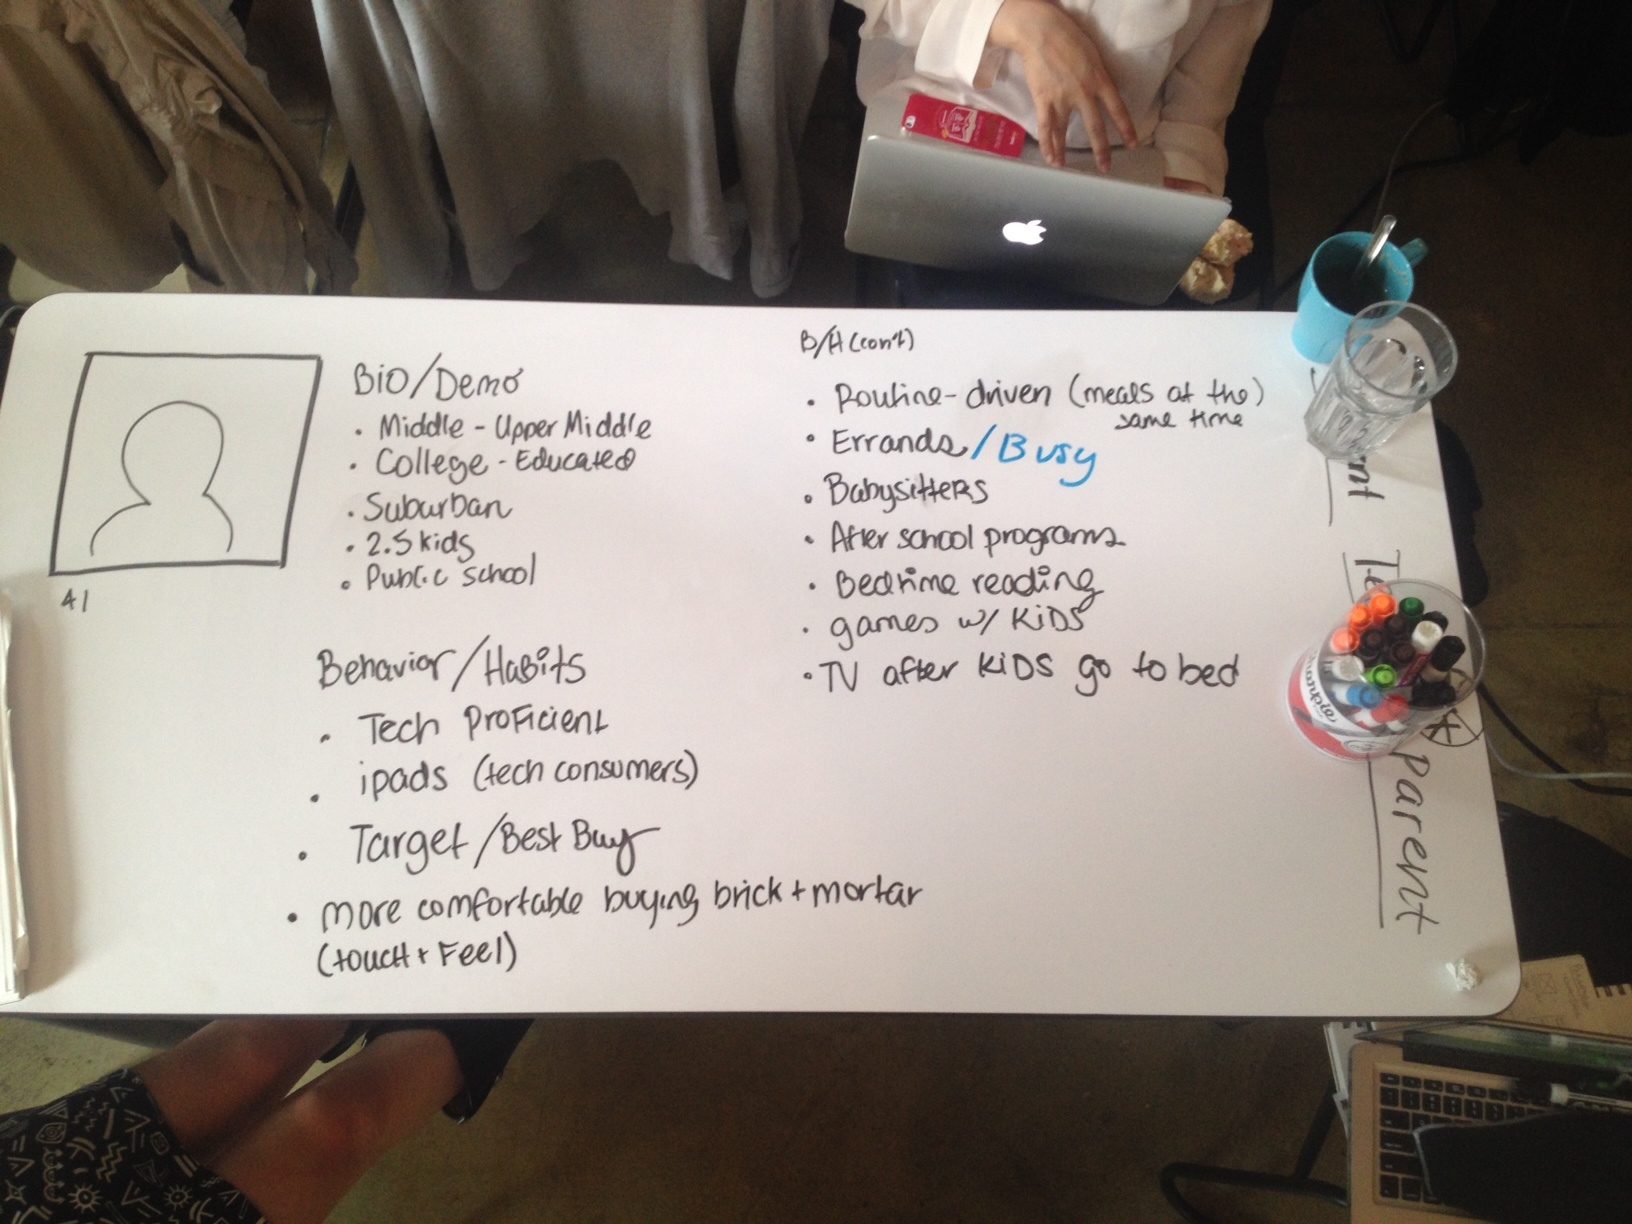 Bio/Demo
• Middle - Upper Middle
• College - Educated
• Suburban
• 2.5 kids
• Public school
41
Behavior/Habits
• Tech Proficient
• ipads (tech consumers)
• Target/Best Buy
• more comfortable buying brick + mortar
(touch + Feel)
B/H (con't)
• Routine-driven (meals at the)
same time
• Errands/Busy
• Babysitters
• After school programs
• Bedtime reading
• games w/ KiDS
• TV after KiDS go to bed
parent